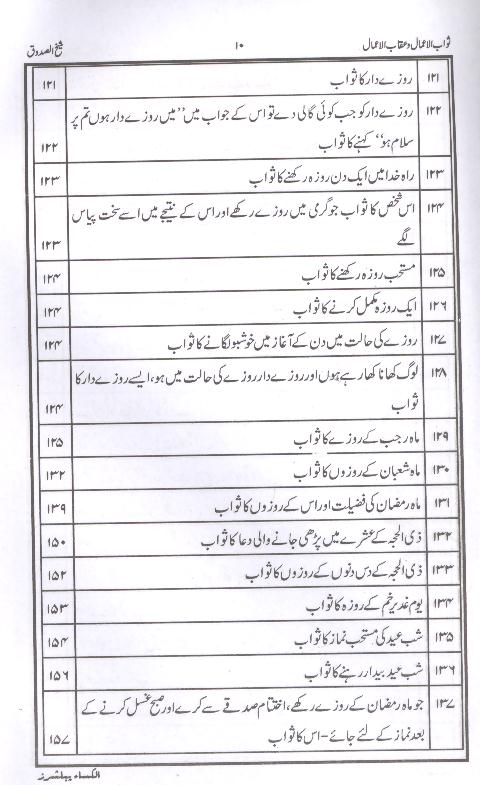 ثواب الاعمال وعقاب الاعمال ۱۰ شیخ الصدوق
۱۲۱ روزے دار کا ثواب ۱۲۱
۱۲۲ روزے دار کو جب کوئی گالی دے تو اس کے جواب میں ’’میں روزے دار ہوں تم پر
سلام ہو‘‘ کہنے کا ثواب ۱۲۲
۱۲۳ راہ خدا میں ایک دن روزہ رکھنے کا ثواب ۱۲۳
۱۲۴ اس شخص کا ثواب جو گرمی میں روزے رکھے اور اس کے نتیجے میں اسے سخت پیاس
لگے ۱۲۳
۱۲۵ مستحب روزہ رکھنے کا ثواب ۱۲۴
۱۲۶ ایک روزہ مکمل کرنے کا ثواب ۱۲۴
۱۲۷ روزے کی حالت میں دن کے آغاز میں خوشبو لگانے کا ثواب ۱۲۴
۱۲۸ لوگ کھانا کھا رہے ہوں اور روزے دار روزے کی حالت میں ہو، ایسے روزے دار کا
ثواب ۱۲۴
۱۲۹ ماہ رجب کے روزے کا ثواب ۱۲۵
۱۳۰ ماہ شعبان کے روزوں کا ثواب ۱۳۲
۱۳۱ ماہ رمضان کی فضیلت اور اس کے روزوں کا ثواب ۱۳۹
۱۳۲ ذی الحجہ کے عشرے میں پڑھی جانے والی دعا کا ثواب ۱۵۰
۱۳۳ ذی الحجہ کے دس دنوں کے روزوں کا ثواب ۱۵۲
۱۳۴ یوم غدیر خم کے روزہ کا ثواب ۱۵۳
۱۳۵ شب عید کی مستحب نماز کا ثواب ۱۵۴
۱۳۶ شب عید بیدار رہنے کا ثواب ۱۵۶
۱۳۷ جو ماہ رمضان کے روزے رکھے، اختتام صدقے سے کرے اور صبح غسل کرنے کے
بعد نماز کے لئے جائے - اس کا ثواب ۱۵۷
الکساء پبلشرز